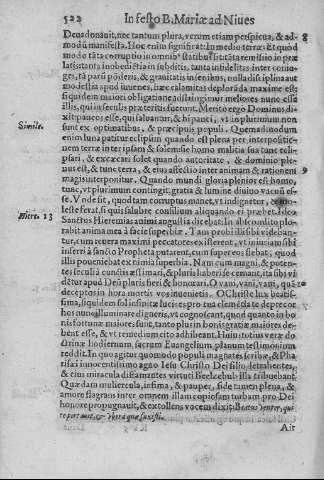 522 In festo B. Mariæ ad Niues
Deus donauit, nec tantum plura, verum etiam perspicua, & ad- 8
modũ manifesta. Hoc enim significat: In medio terræ: Et quòd
modo tãta corruptio in omnib. statibus sit, tãta remissio in præ
latis, tanta inobedientia in subditis, tanta infidelitas inter coniu-
ges, tã parũ pudoris, & grauitatis in senibus, nulla disciplina aut
modestia apud iuuenes, hæc calamitas deplorãda maxime est:
siquidem maiori obligatione adstringimur meliores nunc esse
illis, qui in seculis præteritis fuerunt. Merito ergo Dominus di-
xit paucos esse, qui saluantur, & hi pauci, vt in plurimum non
sunt ex optimatibus, & præcipuis populi. Quemadmodum
Simile. enim luna patitur eclipsim quando est plena per interpositio-
nem terræ inter ipsam & solem: sic homo malitia sua tunc eclip-
satur, & excæcari solet quando autoritate, & dominio ple-
nus est, & tunc terra, & eius affectio inter animam & rationem 9
magis interponitur. Quando mundi gloria plenior est homo,
tunc, vt plurimum contingit, gratia & lumine diuino vacuũ es-
se. Vnde fit, quod tam corruptus manet, vt indignetur, & mo-
leste ferat, si quis salubre consilium aliquando ei præbet. Ideo
Hiere. 13 Sanctus Hieremias animi angustia dicebat: In abscondito plo-
rabit anima mea à facie superbiæ. Tam probi illis sibi videban-
tur, cum reuera maximi peccatores existerent, vt iniuriam sibi
inferri à sancto Propheta putarent, cum superuos siebat; quod
illi proueniebat ex nimia superbia. Nam cum magni, & poten-
tes seculi à cunctis æstimari, & pluris haberi se cernant, ita sibi vi-
dẽtur apud Deũ pluris fieri & honorari. O vani, vani, vani, quã 10
decepti os in hora mortis vos inuenietis. O Christe lux beatis-
sima, liquidem sol iustitiæ luceris pro tua clemẽtia te deprecor
hos nunc illuminare digneris, vt cognoscant, quod quanto in bo-
nis fortunæ maiores sunt, tanto plurin bonis gratiæ maiores de-
bent esse, & vt tendendum cito adhibeant. Huius totius veræ do-
ctrinæ hodiernum sacrum Euangelium, planum testimonium
reddit. In quo agitur quo modo populi magnates scribæ, & Pha-
risæi innocentissimo agno Iesu Christo Dei filio detrahentes,
& eius miracula diffamantes virtuti Beelzebub illa tribuebant.
Quædam muliercula, infima, & pauper, fide tamen plena, &
amore flagrans inter omnem illam copiosam turbam pro Dei
honore propugnauit, & extollens vocem dixit: Beatus venter, qui
te portauit, & vbera quæ suxisti.
Ait